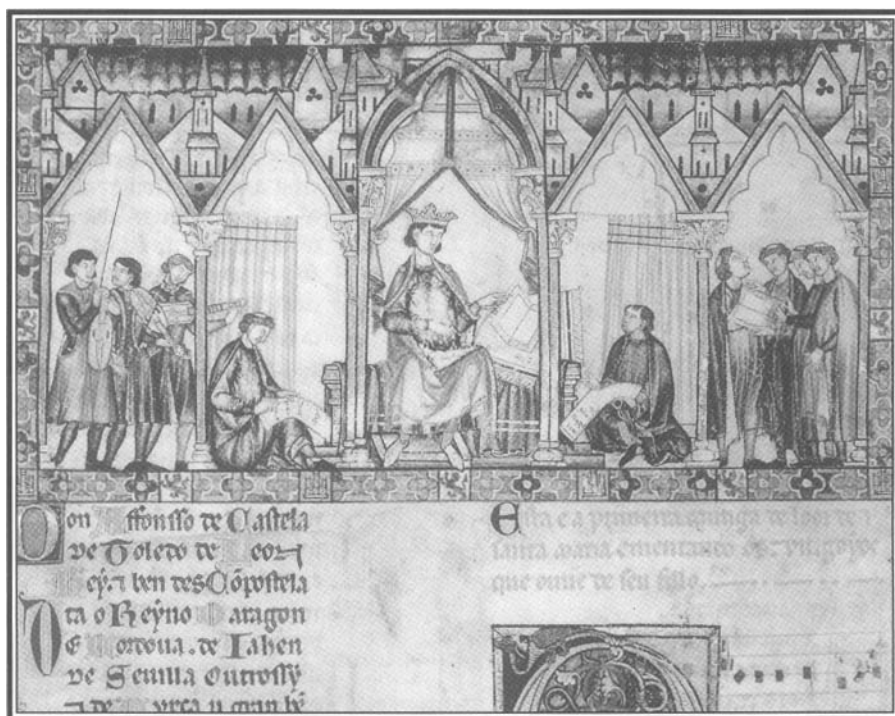 Don Affonsso de Castela
de Toledo de Leon
Rey. ⁊ ben des Cõpostela
ta o Reyno Daragon
De Cordoua. de Iahen
de Seuilla outrossy
⁊ de Murça u gran bẽ
Esta e a primeira cantiga de loor de
santa maria ementando os .vii. goyos
que ouue de seu fillo.